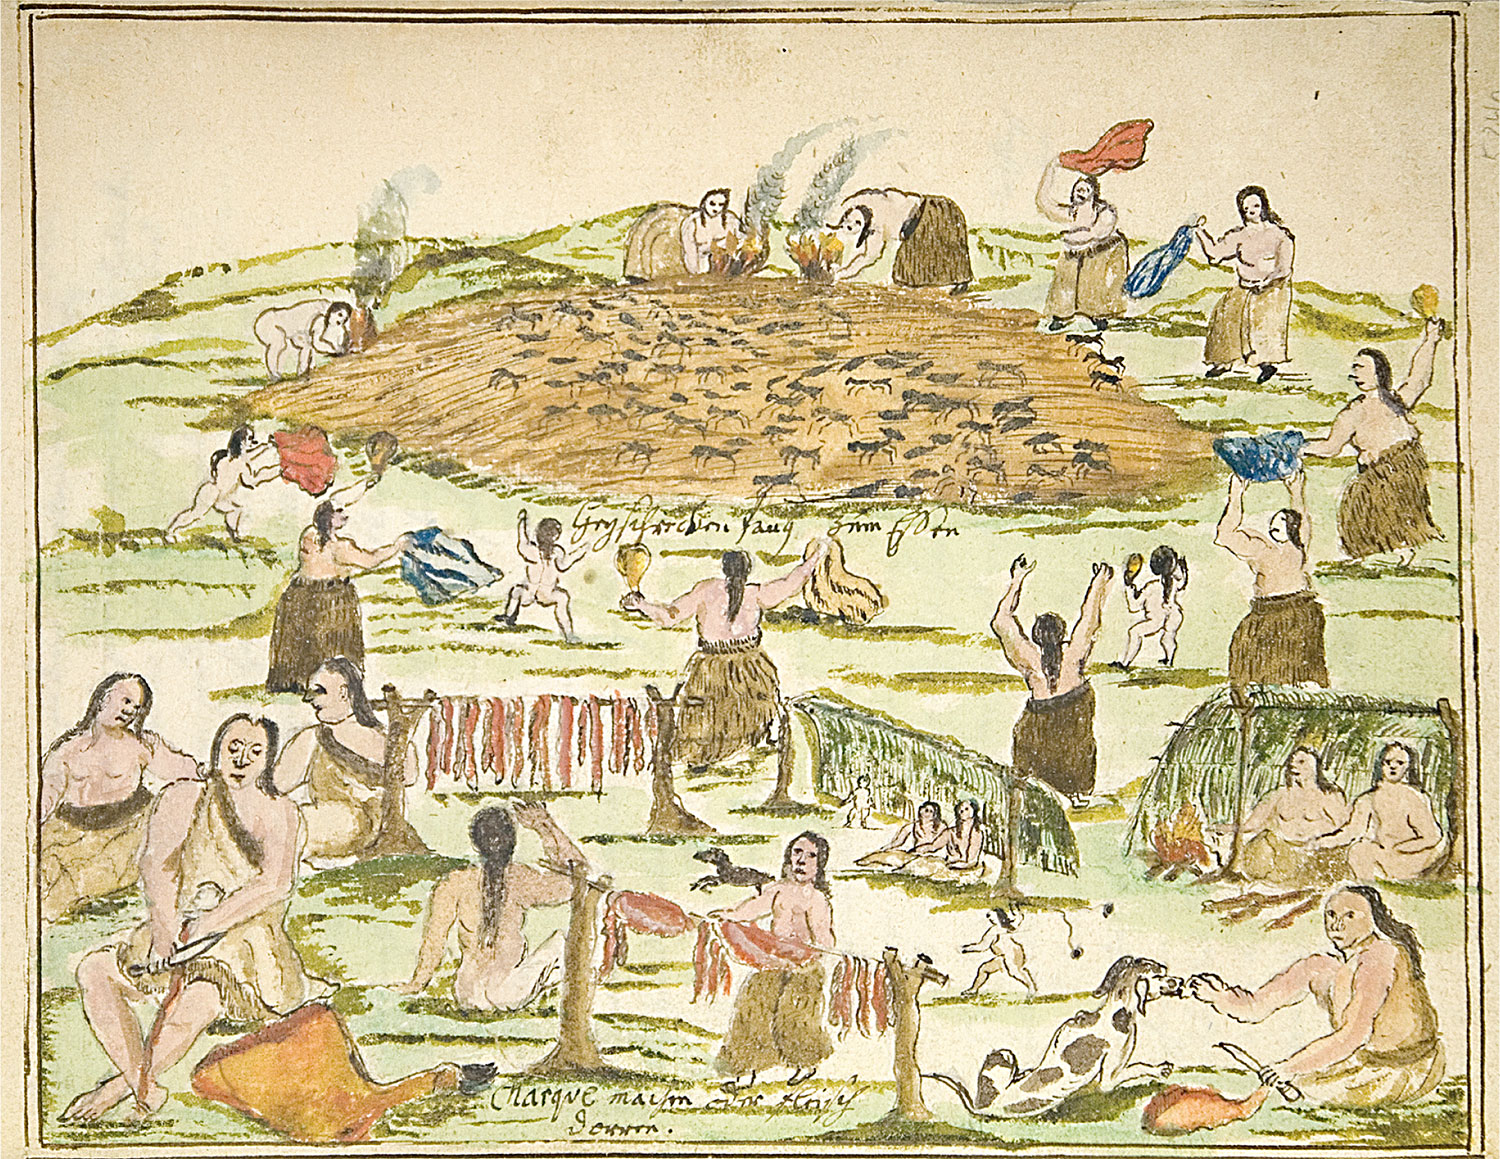 Heyschrecken fang zum Essen
Charque machen oder fleisch
dörren.